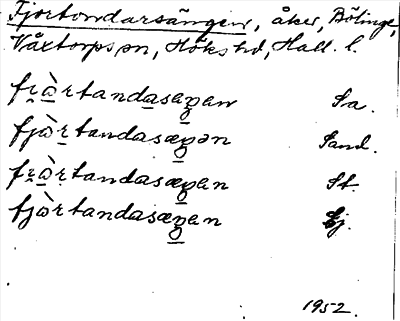 Fjortondarsängen, åker, Bölinge,
Våxtorps sn, Höks hd, Hall. l.
frà̠rtanda̠sæŋ̠an Sa.
fjàr̠tandasæŋ̠ən Sand.
frà̠rtandasæŋ̠an St.
fjàrtandasæŋ̠an Ej.
1952.